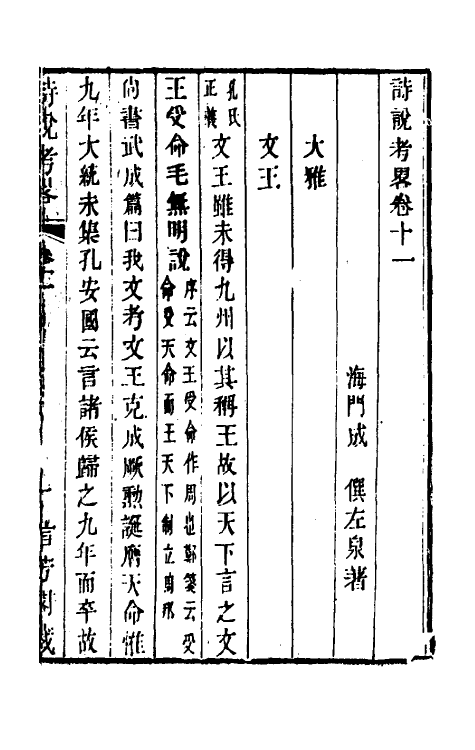 詩說考畧卷十一
海門成 僎左泉著
大雅
文王
孔氏正義文王雖未得九州以其稱王故以天下言之文
王受命毛無明說序云文王受命作周也鄭箋云受命受天命而王天下制立周邦
尚書武成篇曰我文考文王克成厥勲誕膺天命惟
九年大統未集孔安國云言諸侯歸之九年而卒故
詩說考畧 卷十一